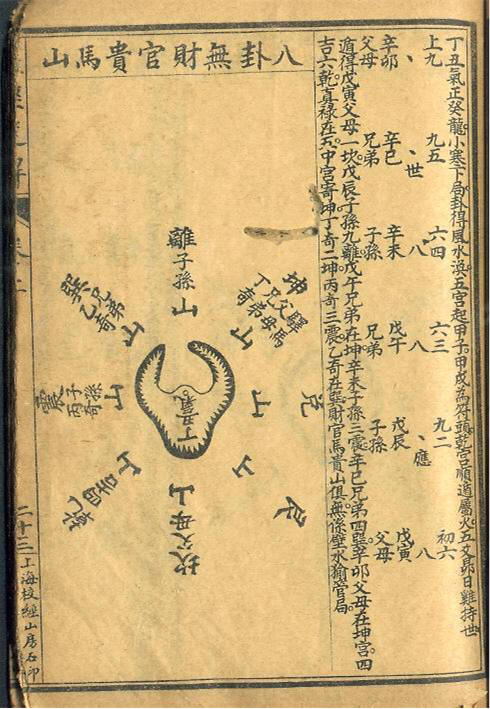 丁丑氣正癸龍小寒下局卦得風水渙五宮起甲子甲戌為符頭乾宮順遁屬火五爻昴日雞持世
上九 九五 六四 六三 九二 初六
、 、世 八 八 、應 八
辛卯 辛巳 辛未 戊午 戊辰 戊寅
父母 兄弟 子孫 兄弟 子孫 父母
遁得戊寅父母一坎戊辰子孫九離戊午兄弟在坤辛未子孫三震辛巳兄弟四巽辛卯父母在坤宮四
吉六乾真祿在五中宮寄坤丁奇二坤丙奇三震乙奇在巽財官馬貴山俱無係壁水㺄管局
八卦無財官貴馬山
坤
驛馬
父母
兄弟
丁奇
山
兌
山
山
離子孫山
丁丑氣
坎父母山
巽兄弟乙奇
山
震子孫丙奇山
山
二十三
上海校經山房石印